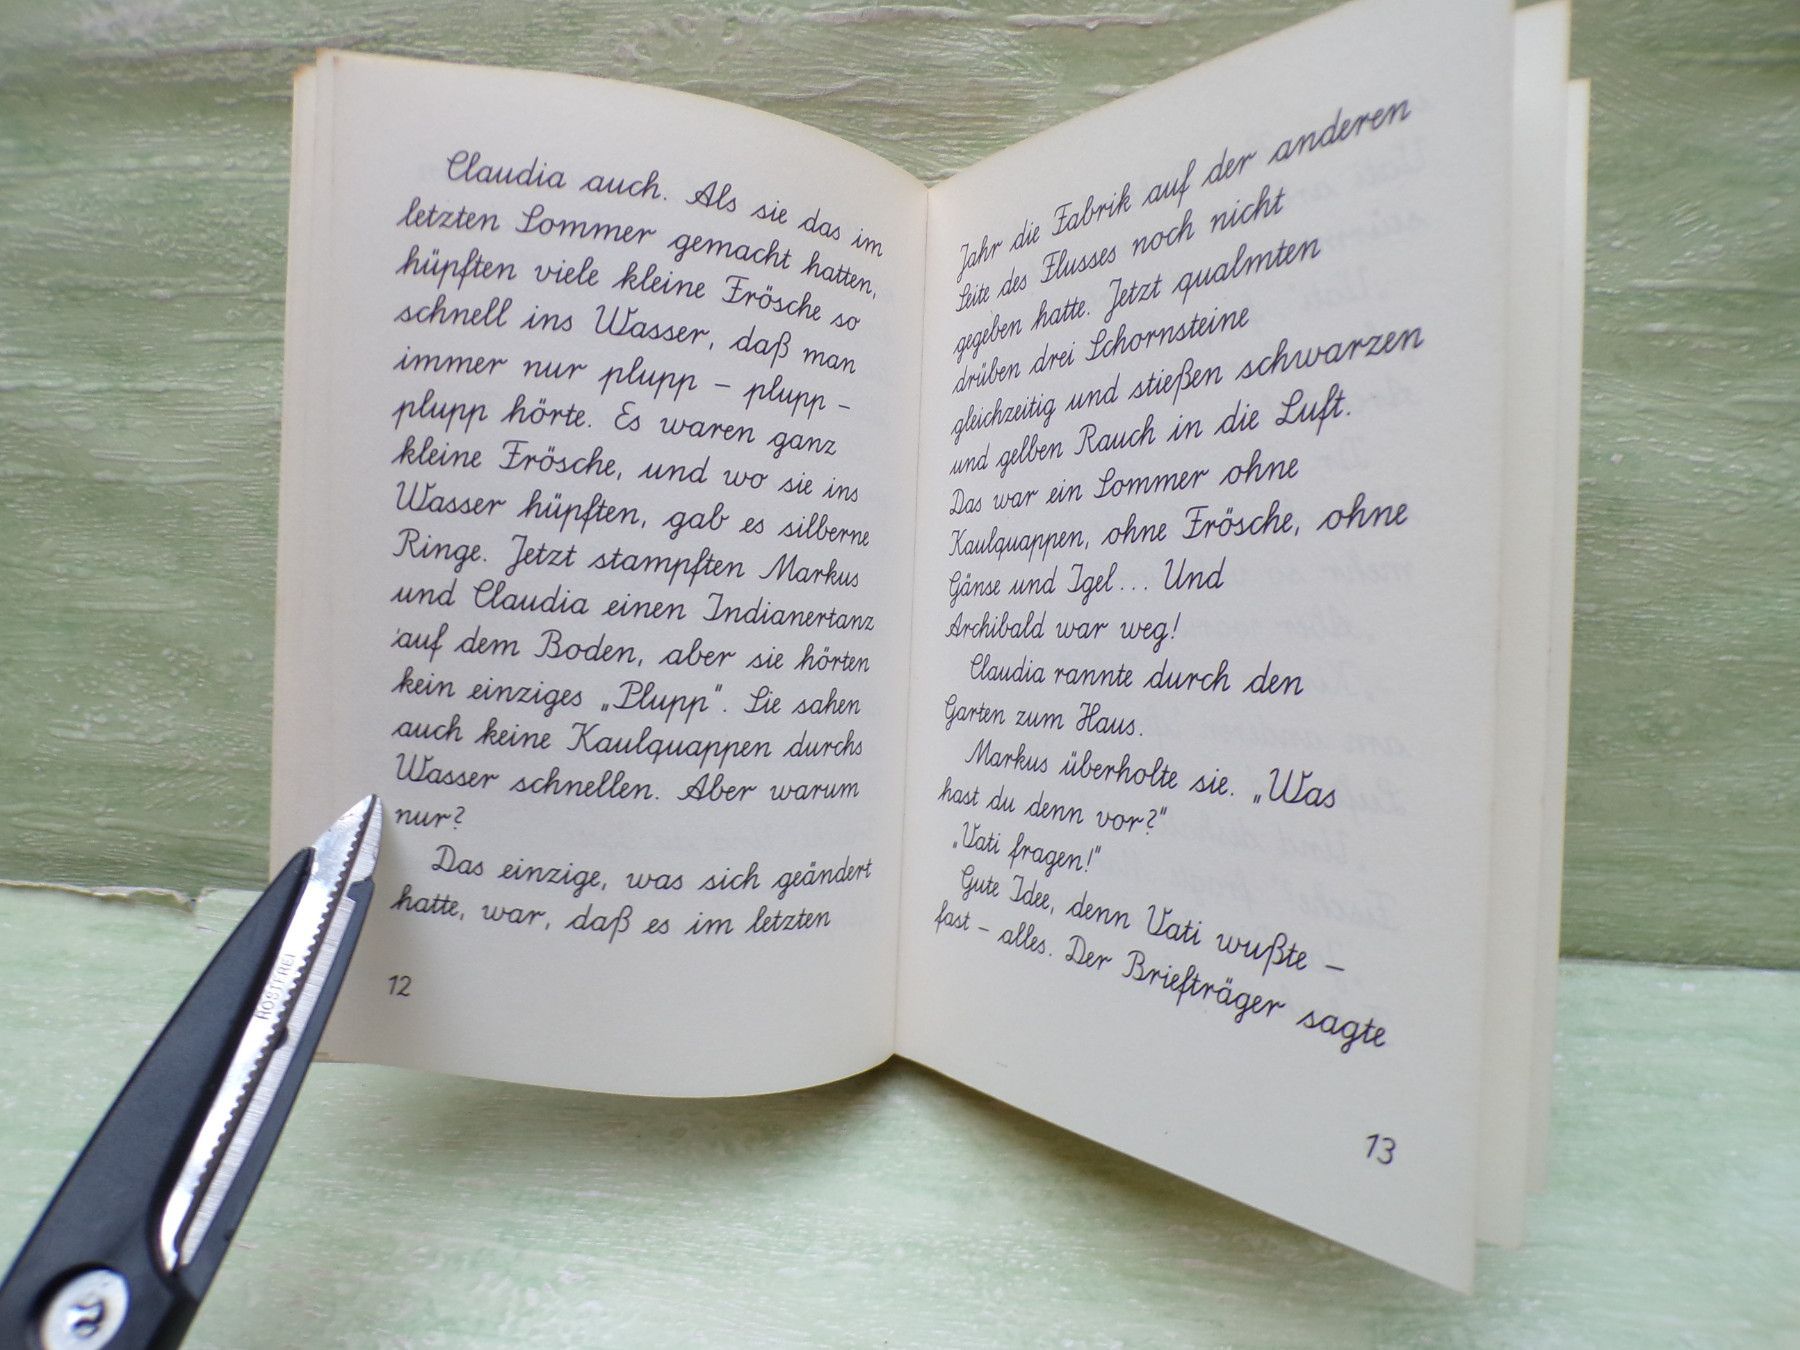 Claudia auch. Als sie das im
letzten Sommer gemacht hatten,
hüpften viele kleine Frösche so
schnell ins Wasser, daß man
immer nur plupp – plupp –
plupp hörte. Es waren ganz
kleine Frösche, und wo sie ins
Wasser hüpften, gab es silberne
Ringe. Jetzt stampften Markus
und Claudia einen Indianertanz
auf dem Boden, aber sie hörten
kein einziges „Plupp“. Sie sahen
auch keine Kaulquappen durchs
Wasser schnellen. Aber warum
nur?
Das einzige, was sich geändert
hatte, war, daß es im letzten
12
Jahr die Fabrik auf der anderen
Seite des Flusses noch nicht
gegeben hatte. Jetzt qualmten
drüben drei Schornsteine
gleichzeitig und stießen schwarzen
und gelben Rauch in die Luft.
Das war ein Sommer ohne
Kaulquappen, ohne Frösche, ohne
Gänse und Igel... Und
Archibald war weg!
Claudia rannte durch den
Garten zum Haus.
Markus überholte sie. „Was
hast du denn vor?“
„Vati fragen!“
Gute Idee, denn Vati wußte –
fast – alles. Der Briefträger sagte
13
ROSTFREI